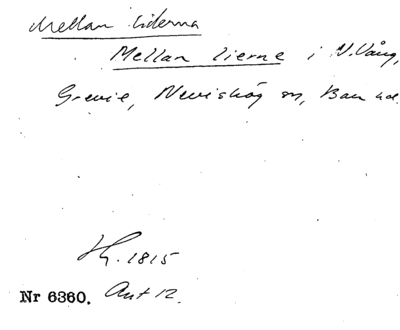 Mellan liderna
Mellan lierne i N.Vång,
Grevie, Nevishög sn, Bara hd.
Hg. 1815
Nr 6360. Akt 12.